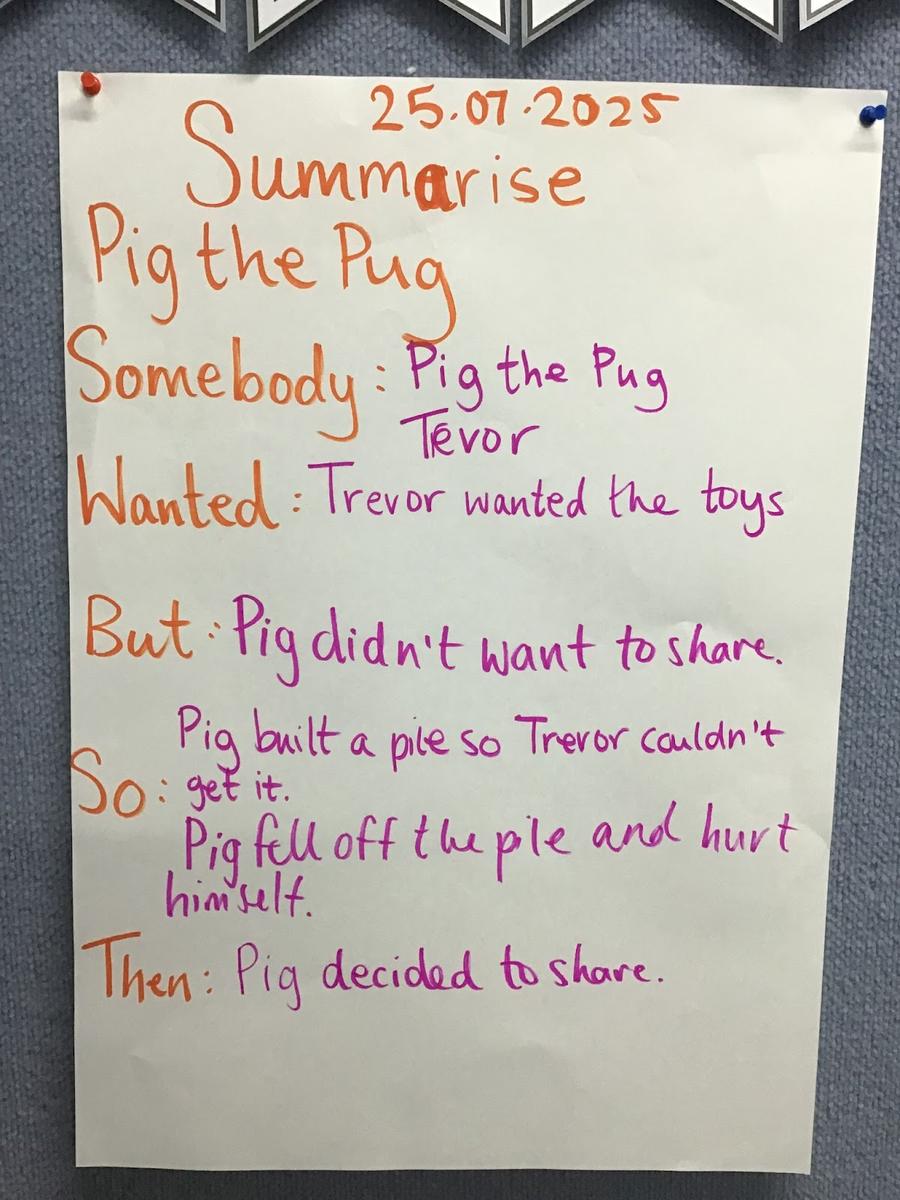 25.07.2025
Summarise
Pig the Pug
Somebody: Pig the Pug
Tevor
Wanted: Trevor wanted the toys
But: Pig didn't want to share.
Pig built a pile so Trevor couldn't
So: get it.
Pig fell off the pile and hurt
himself.
Then: Pig decided to share.